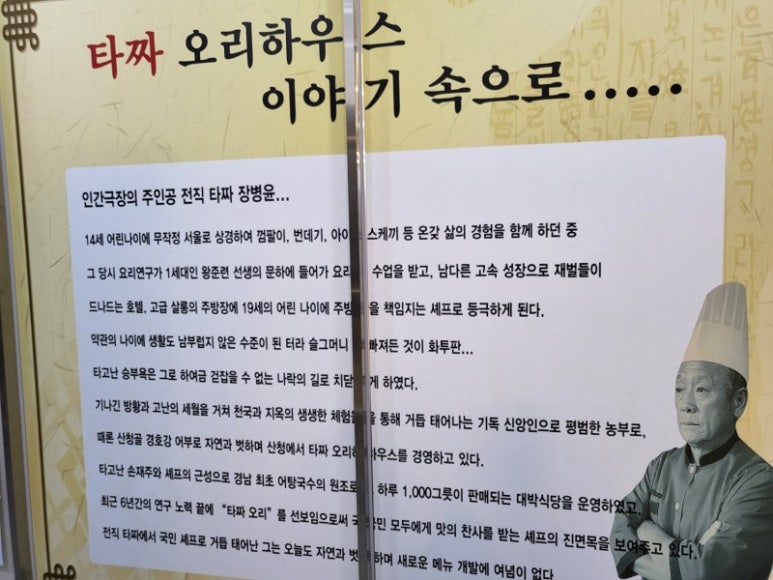 타짜 오리하우스
이야기 속으로.....
인간극장의 주인공 전직 타짜 장병윤...
14세 어린나이에 무작정 서울로 상경하여 껌팔이, 번데기, 아이스케끼 등 온갖 삶의 경험을 함께 하던 중
그 당시 요리연구가 1세대인 왕준련 선생의 문하에 들어가 요리 수업을 받고, 남다른 고속 성장으로 재벌들이
드나드는 호텔, 고급 살롱의 주방장에 19세의 어린 나이에 주방을 책임지는 셰프로 등극하게 된다.
약관의 나이에 생활도 남부럽지 않은 수준이 된 터라 슬그머니 빠져든 것이 화투판...
타고난 승부욕은 그로 하여금 걷잡을 수 없는 나락의 길로 치닫게 하였다.
기나긴 방황과 고난의 세월을 거쳐 천국과 지옥의 생생한 체험을 통해 거듭 태어나는 기독 신앙인으로 평범한 농부로,
때론 산청골 경호강 어부로 자연과 벗하며 산청에서 타짜 오리하우스를 경영하고 있다.
타고난 손재주와 셰프의 근성으로 경남 최초 어탕국수의 원조로 하루 1,000그릇이 판매되는 대박식당을 운영하였고,
최근 6년간의 연구 노력 끝에 "타짜 오리"를 선보임으로써 국민 모두에게 맛의 찬사를 받는 셰프의 진면목을 보여주고 있다.
전직 타짜에서 국민 셰프로 거듭 태어난 그는 오늘도 자연과 벗하며 새로운 메뉴 개발에 여념이 없다.